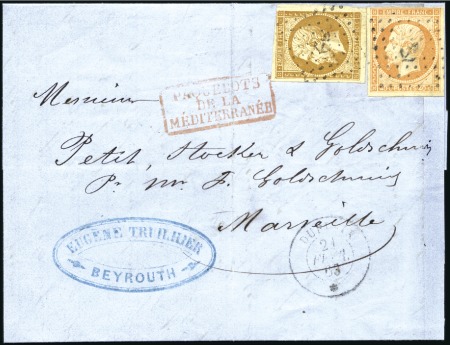 EMPIRE FRANC
PAQUEBOTS
DE LA
MÉDITERRANÉE
Messieurs
Petit, Stocker & Goldschmid
Pr. Mr. F. Goldschmid
Marseille
EUGÈNE TRUILHIER
BEYROUTH
21